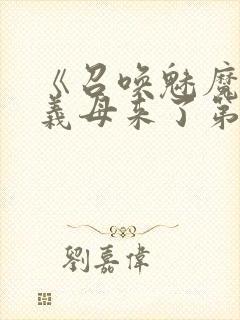 《召唤魅魔
義母来了第
劉嘉偉